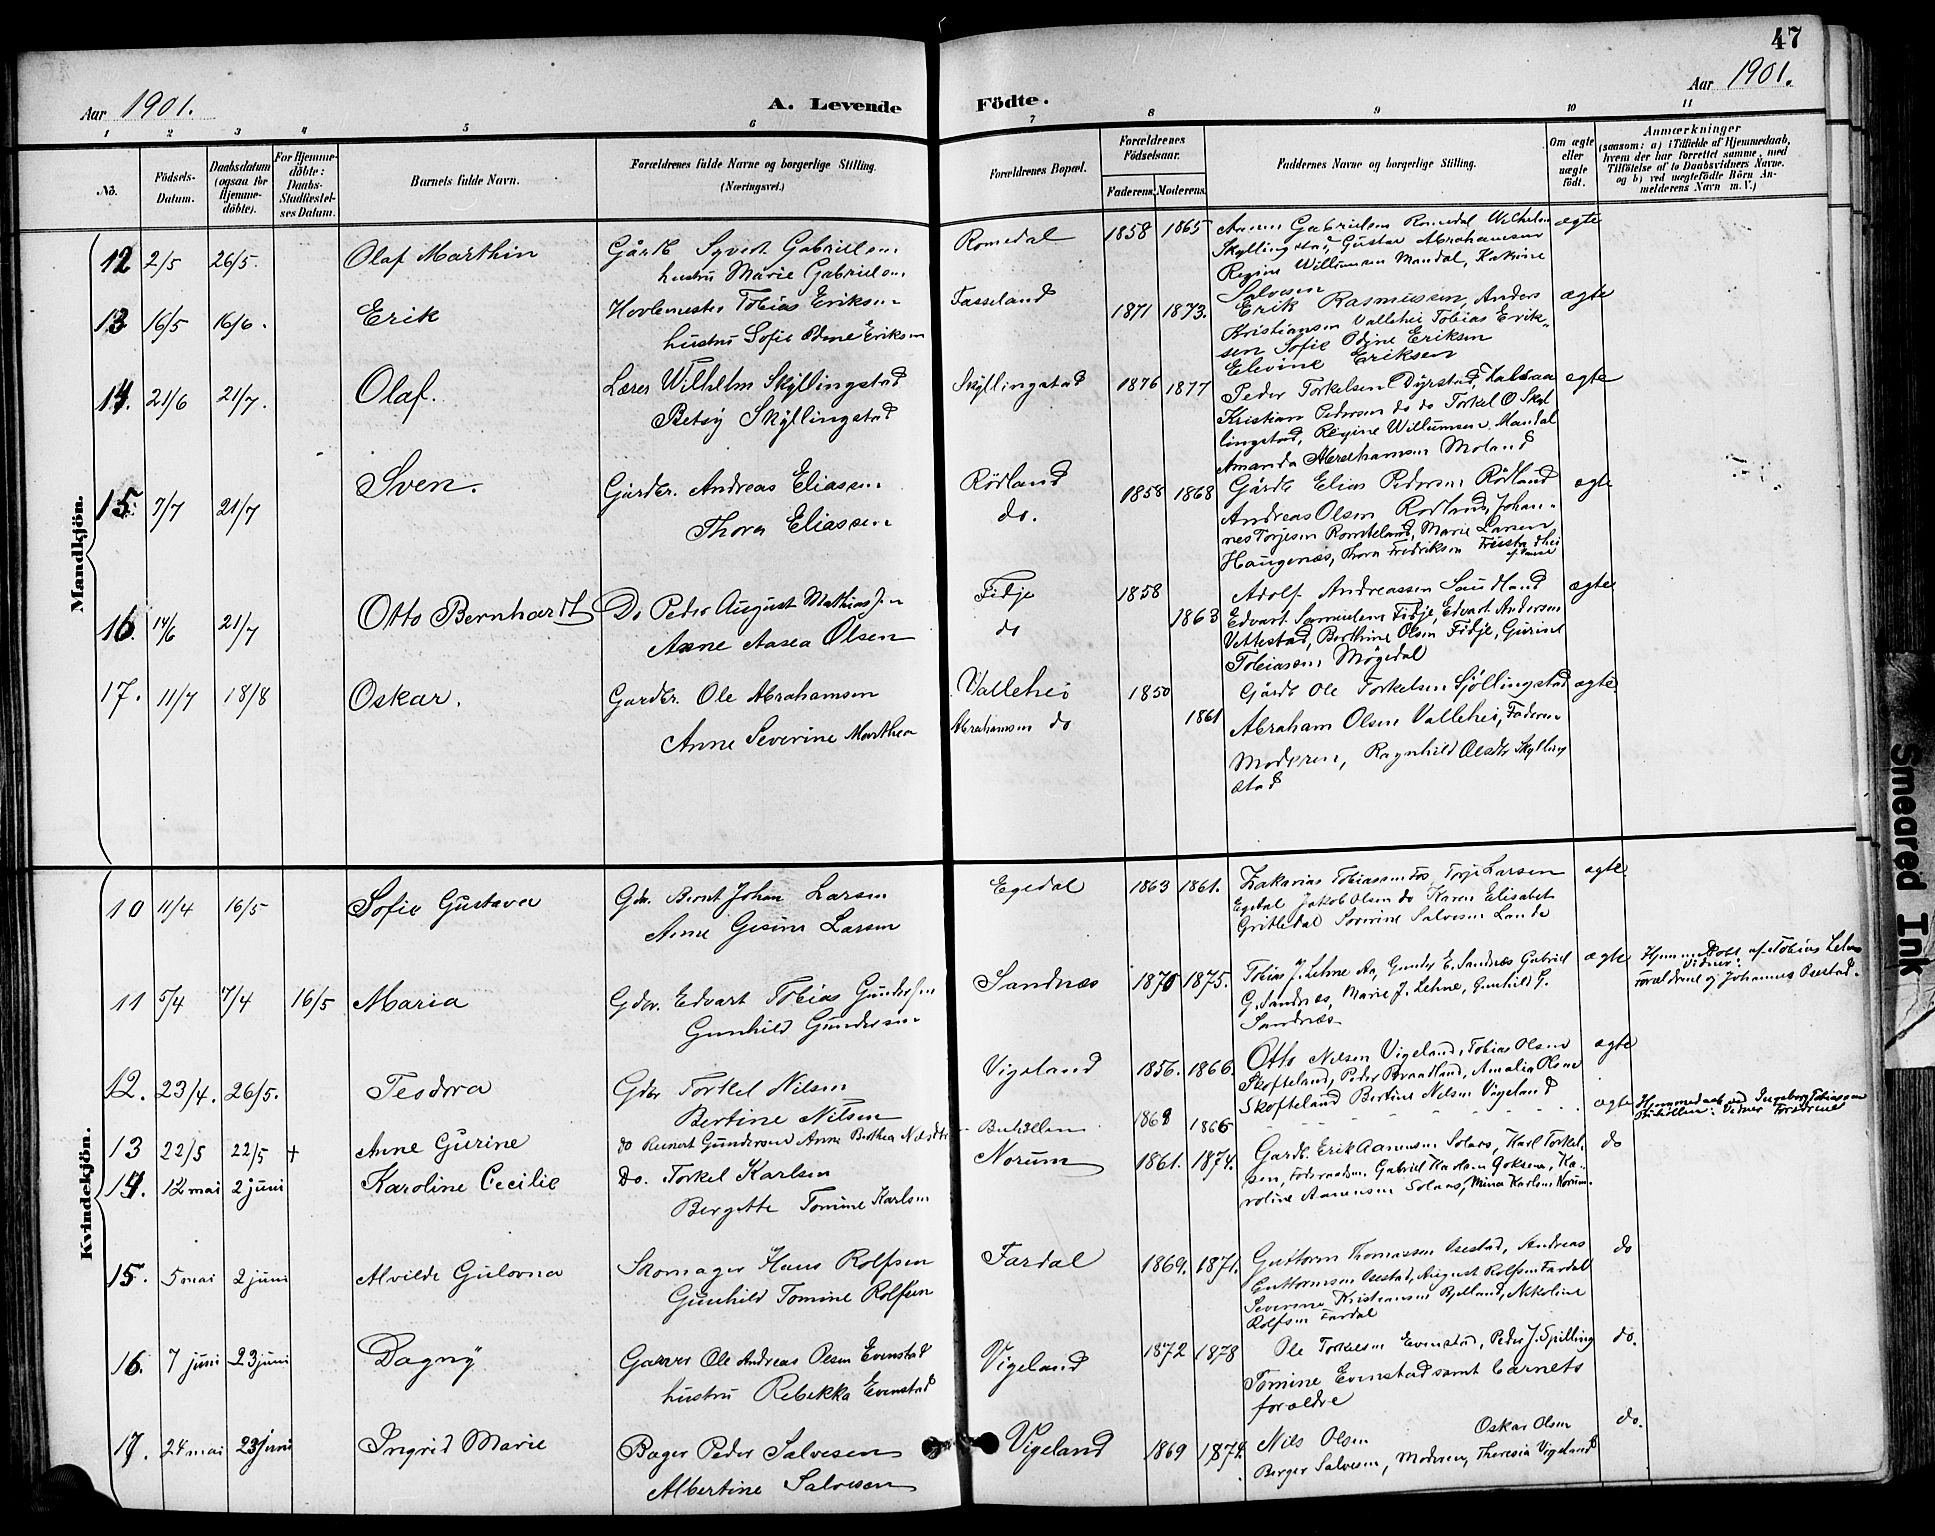 47
Aar 1901.
A. Levende Födte.
Aar 1901.
1 2 3 4 5 6 7 8 9 10 11
No.
Födsels-Datum.
Daabsdatum (ogsaa for Hjemme-döbte).
For Hjemme-döbte: Daabs-Stadfæstel-ses Datum.
Barnets fulde Navn.
Forældrenes fulde Navne og borgerlige Stilling. (Næringsvei.)
Forældrenes Bopæl.
Forældrenes Födselsaar.
Faderens. Moderens.
Faddernes Navne og borgerlige Stilling.
Om ægte eller uægte födt.
Anmærkninger
(saasom: a) i Tilfælde af Hjemmedaab,
hvem der har forrettet samme, med
Tilföielse af to Daabsvidners Navne,
og b) ved uægtefödte Börn An-
melderens Navn m. V.)
Mandkjön.
12 2/5 26/5. Olaf Marthin Gårdb Syvert Gabrielsen Romedal 1858 1865 Gabrielsen Romedal Wilhelm ægte
hustru Marie Gabrielsen Skyllingstad, Gustav Abrahamsen
Regine Willumsen Mandal, Katrine
Salvesen
13 16/5 16/6. Erik Hovlemester Tobias Eriksen Fasseland 1871 1873. Erik Rasmussen, Anders ægte
hustru Sofie Odine Eriksen Kristiansen Vallehei Tobias Erik-
sen Sofie Odine Eriksen
Elevine Eriksen
14. 21/6 21/7. Olaf. Lærer Wilhelm Skyllingstad Skyllingstad 1876 1877 Peder Torkelsen Dyrstad, Halsaa ægte
Betsy Skyllingstad Kristian Pedersen do do Torkel O Skyl
lingstad, Regine Willumsen Mandal
Amanda Abrahamsen Moland
15. 7/7 21/7 Sven. Gårdbr. Andreas Eliassen Rödland 1858 1868 Gårdb Elias Pedersen Rödland ægte
Thora Eliassen do. Andreas Olsen Rödland, Johan-
nes Torjesen Romteland, Marie Larsen
Haugenæs, Thora Fredriksen
16 14/6 21/7 Otto Bernhardt Do Peder August Mathiassen Fidje 1858 Adolf Andreassen Saudland ægte
Anne Aasea Olsen do 1863 Edvart Samuelsen Fidje, Edvart Andersen
Vittestad, Berthine Olsen Fidje, Gurine
Tobiasen Mögedal
17. 11/7 18/8 Oskar. Gardbr. Ole Abrahamsen Vallehei 1850 Gårdb Ole Torkelsen Sjöllingstad ægte
Anne Severine Marthea Abrahamsen do 1861 Abraham Olsen Vallehei, Faderen
Moderen, Ragnhild Olsdtr Skylling
stad
Kvindekjön.
10 11/4 16/5 Sofie Gustava Gdr. Bernt Johan Larsen Egedal 1863 1861. Zakarias Tobiassen Torje Larsen ægte
Anne Gesine Larsen Egedal Jakob Olsen do Karen Elisabet
Gritledal Severine Salvesen Lande
11 5/4 7/4 16/5 Maria Gdr. Edvart Tobias Gundersen Sandnæs 1870 1875. Tobias J. Lehne Aa, Gunder E. Sandnæs Gabriel ægte Hjemmedöbt af Tobias Lehne
Vidner:
Gunhild Gundersen G. Sandnæs, Marie J. Lehne, Gunhild G. Forældrene og Johannes Osestad.
Sandnæs
12. 23/4. 26/5. Teodora Gdbr Torkel Nilsen Vigeland 1856. 1866. Otto Nilsen Vigeland, Tobias Olsen ægte
Bertine Nilsen Skofteland, Peder Braadland, Amalia Olsen
Skofteland Bertine Nilsen Vigeland
13 22/5 22/5 + Anne Gurine do Reinert Gundersen Anne Berthea 1868 1866 ægte Hjemmedaab ved Ingeborg Tobiassen
Vidner Forældrene
14. 12 mai 2 juni Karoline Cecilie Do. Torkel Karlsen Norum 1861. 1874. Gardb. Erik Aanensen Solaas, Karl Torkel- do
Bergette Tomine Karlsen sen, Föderaadsm. Gabriel Karlsen Goksem, Ka-
roline Aanensen Solaas, Mina Karlsen Norum.
15. 5 mai 2 juni Alvilde Gulovna Skomager Hans Rolfsen Fardal 1869. 1871. Guttorm Thomassen Osestad, Andreas do
Gunhild Tomine Rolfsen Guttormsen Osestad, August Rolfsen Fardal
Severine Kristiansen Bjelland, Nikoline
Rolfsen Fardal
16. 7 juni 23 juni Dagny Garver Ole Andreas Olsen Evenstad Vigeland 1872 1878 Ole Torkelsen Evenstad, Peder J. Spilling do.
hustru Rebekka Evenstad Tomine Evenstad samt barnets
forældre
17. 24 mai 23 juni Ingrid Marie Bager Peder Salvesen Vigeland 1869 1874. Nils Olsen Oskar Olsen do.
Albertine Salvesen Berger Salvesen, Moderen, Theresia Vigeland
Smeared Ink